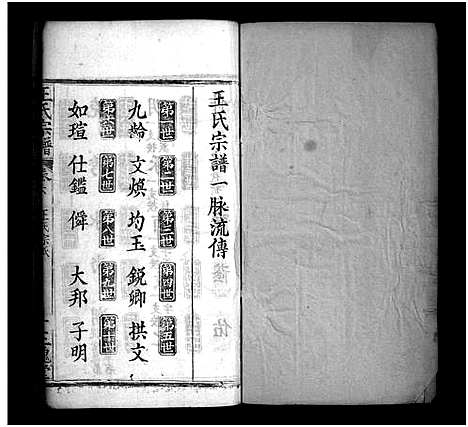 王氏宗譜一脉流傳
第一世 第二世 第三世 第四世 第五世
九齡 文煥 均玉 銳卿 拱文
第六世 第七世 第八世 第九世 第十世
如瑄 仕鑑 傑 大邦 子明
王氏宗譜